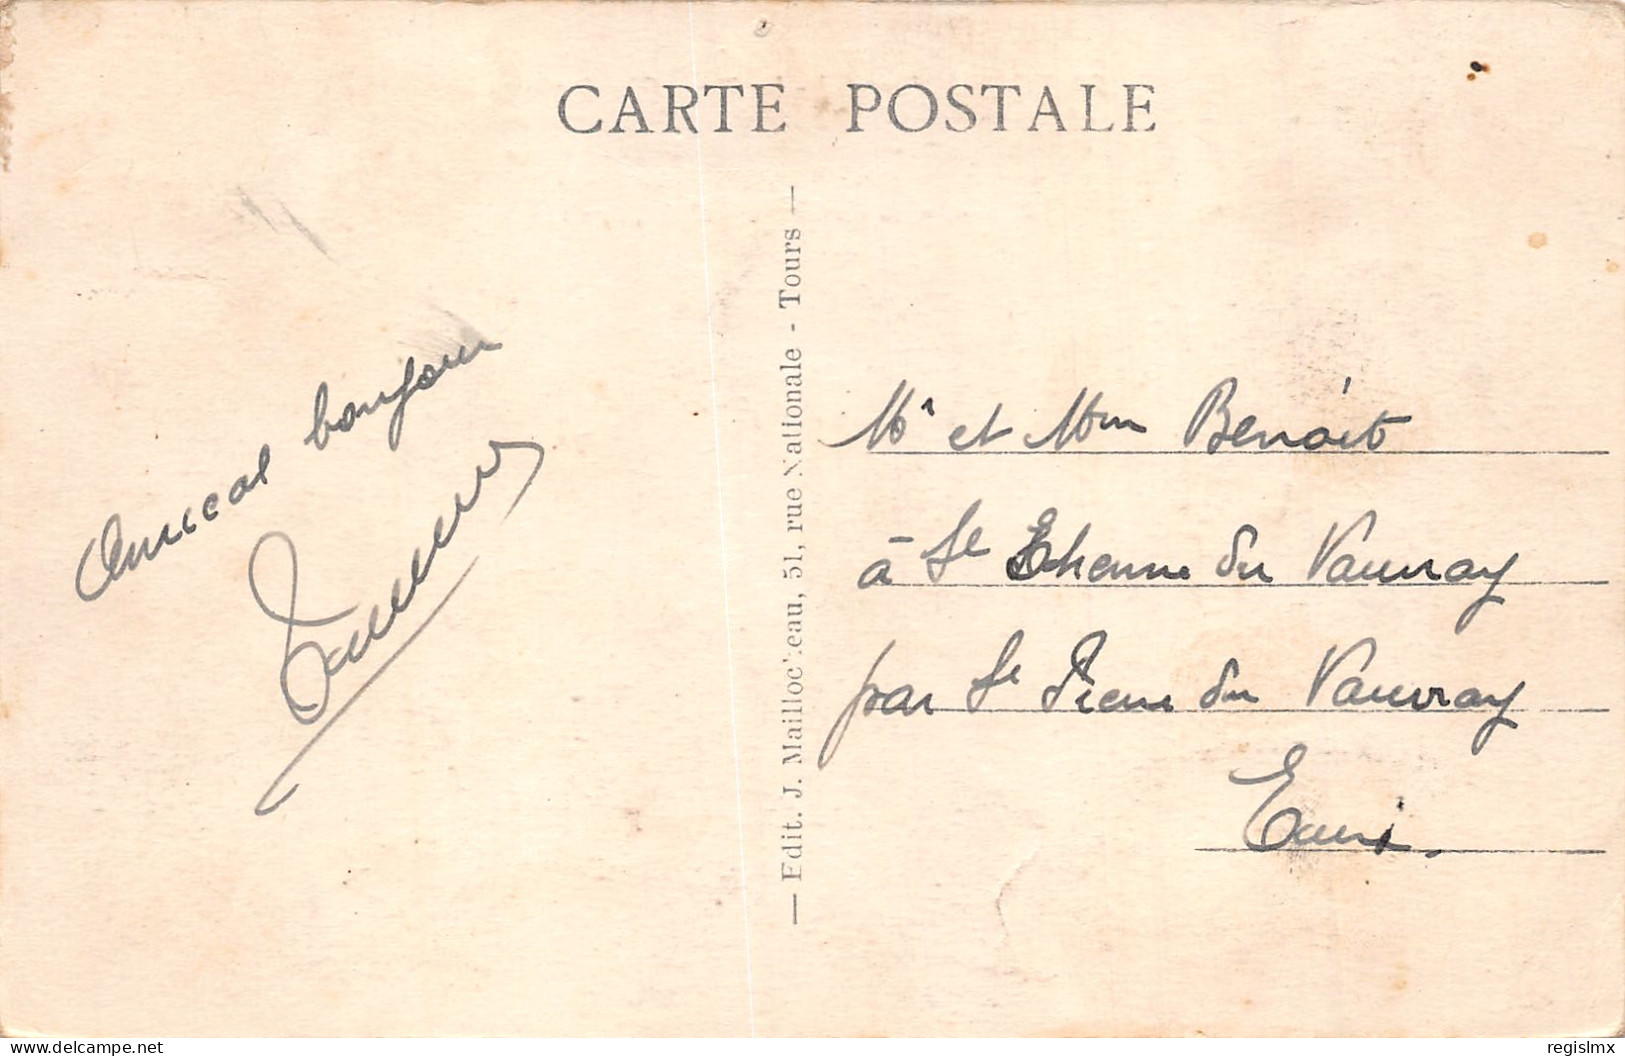 CARTE POSTALE
Amical bonjour
— Edit. J. Mailloc'eau, 51, rue Nationale - Tours —
Mr et Mm Benoit
à St Etienne du Vauvray
par St Pierre du Vauvray
Eure.
regislmx
www.delcampe.net